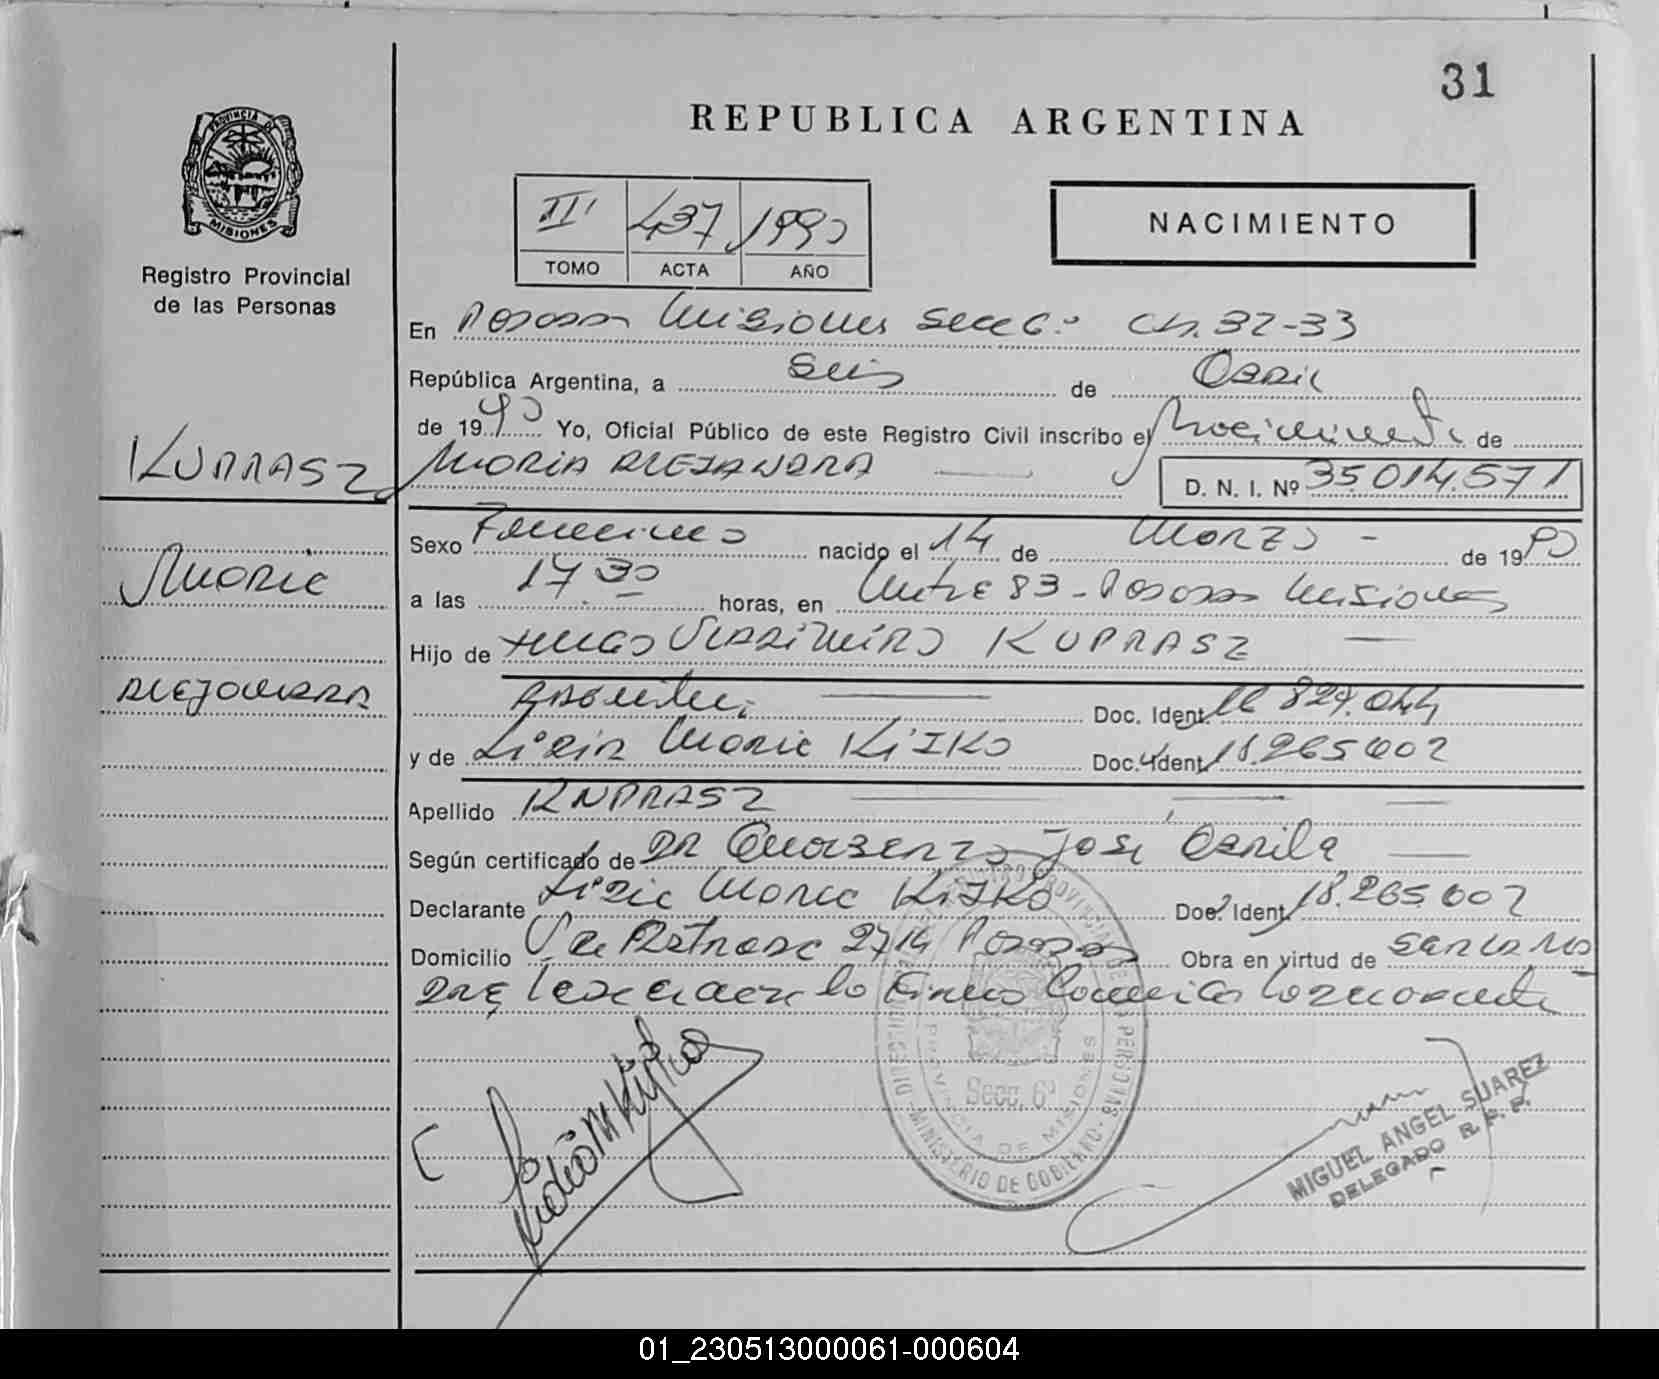 31
REPUBLICA ARGENTINA
PROVINCIA DE
MISIONES
Registro Provincial
de las Personas
III 437 1990
TOMO ACTA AÑO
NACIMIENTO
En Posadas Misiones Secc 6º Ch. 32-33
República Argentina, a Seis de Abril
de 1990 Yo, Oficial Público de este Registro Civil inscribo el Nacimiento de
KUPRASZ
MARIA ALEJANDRA D. N. I. Nº 35.014.571
Sexo Femenino nacido el 14 de Marzo - de 1990
Maria
a las 17 30 horas, en 83 - Posadas Misiones
Hijo de Hugo KUPRASZ
ALEJANDRA
Argentina Doc. Ident. 16 827.044
y de Lidia Maria KiZKO Doc. Ident. 18.265.002
Apellido KUPRASZ
Según certificado de DR José
Declarante Lidia Maria KiZKO Doc. Ident. 18.265.002
Domicilio 2714 Posadas Obra en virtud de
que la firma conmigo
DIRECCION REGISTRO PROVINCIAL DE LAS PERSONAS - MINISTERIO DE GOBIERNO -
PROVINCIA DE MISIONES
Secc. 6ª
MIGUEL ANGEL SUAREZ
DELEGADO R. P. P.
01_230513000061-000604